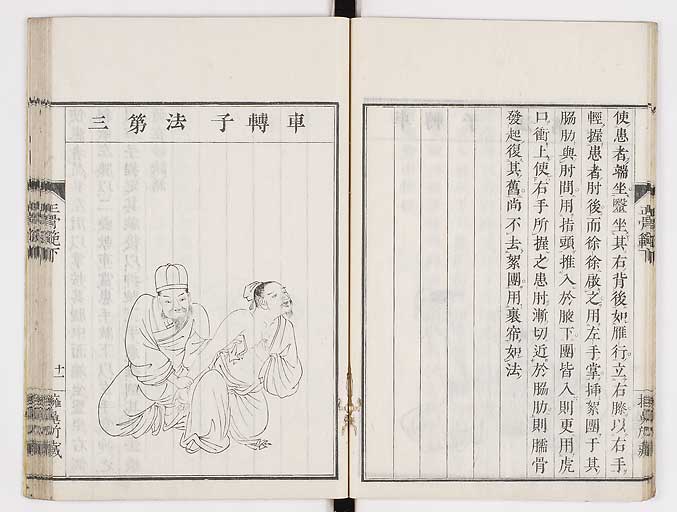 使患者端坐毉坐其右背後如雁行立右膝以右手
輕握患者肘後而徐徐啟之用左手掌挿絮團于其
脇肋與肘間用指頭推入於腋下團皆入則更用虎
口衝上使右手所握之患肘漸切近於脇肋則臑骨
發起復其舊尚不去絮團用裹帘如法
正骨範下
車轉子法第三
正骨範下
十一